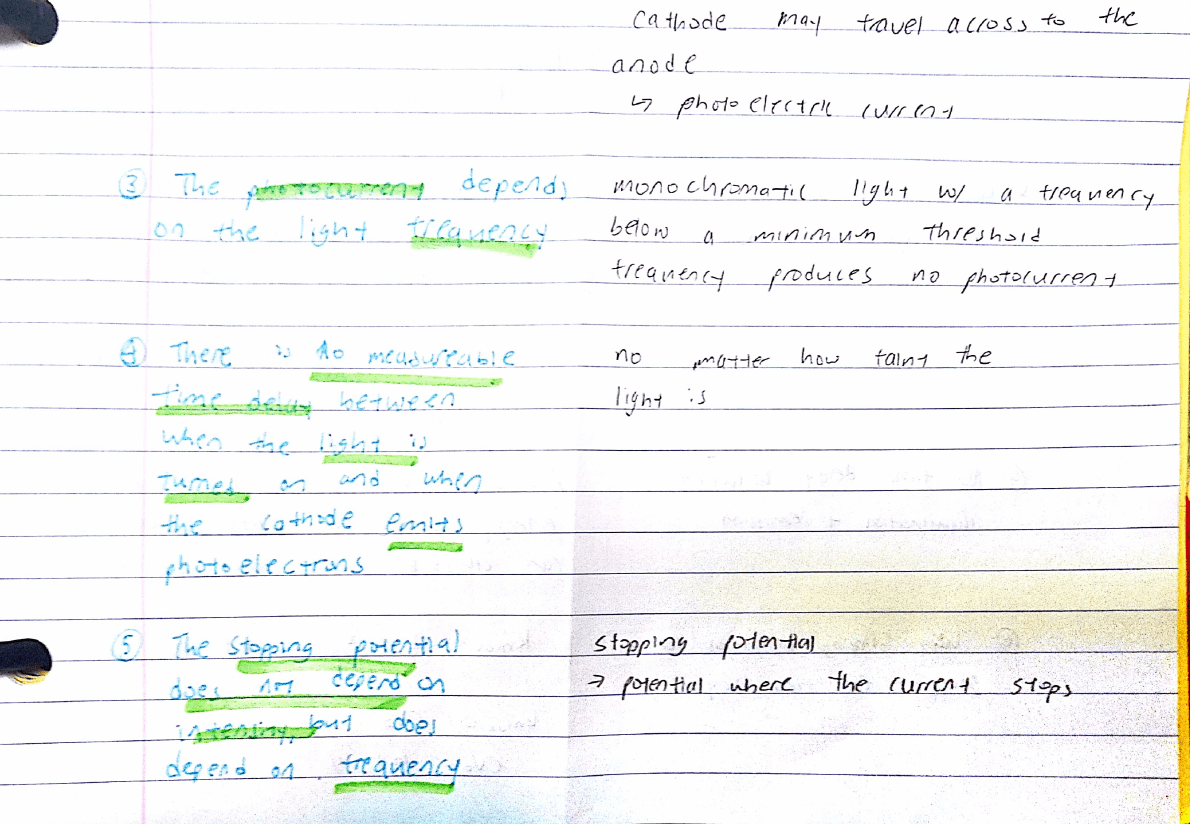 cathode may travel across to the
anode
↳ photoelectric current
③ The photocurrent depends
on the light frequency
monochromatic light w/ a frequency
below a minimum threshold
frequency produces no photocurrent
④ There is no measureable
time delay between
when the light is
turned on and when
the cathode emits
photoelectrons
no matter how faint the
light is
⑤ The stopping potential
does not depend on
intensity, but does
depend on frequency
stopping potential
→ potential where the current stops